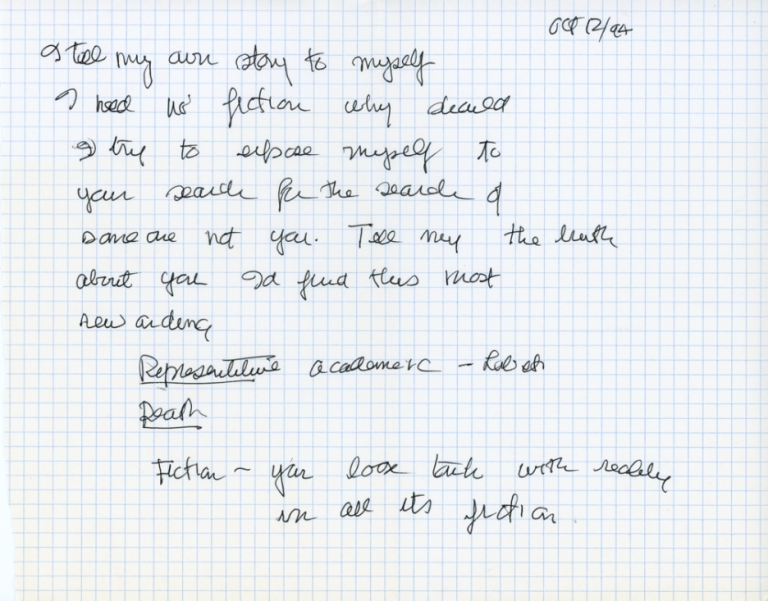 OCT 12/94
I tell my own story to myself
I need no fiction why should
I try to expose myself to
your search for the search of
someone not you. Tell my the truth
about you I'd find this most
rewarding
Representitive academic -
Death
Fiction - you loose touch with reality
in all its fiction.